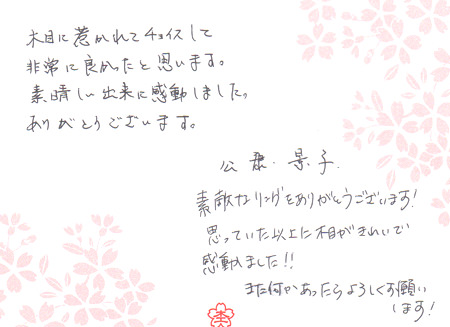 木目に惹かれてチョイスして
非常に良かったと思います。
素晴しい出来に感動しました。
ありがとうございます。
公彦・景子.
素敵なリングをありがとうございます!
思っていた以上に木目がきれいで
感動しました!!
また何かあったらよろしくお願い
します!